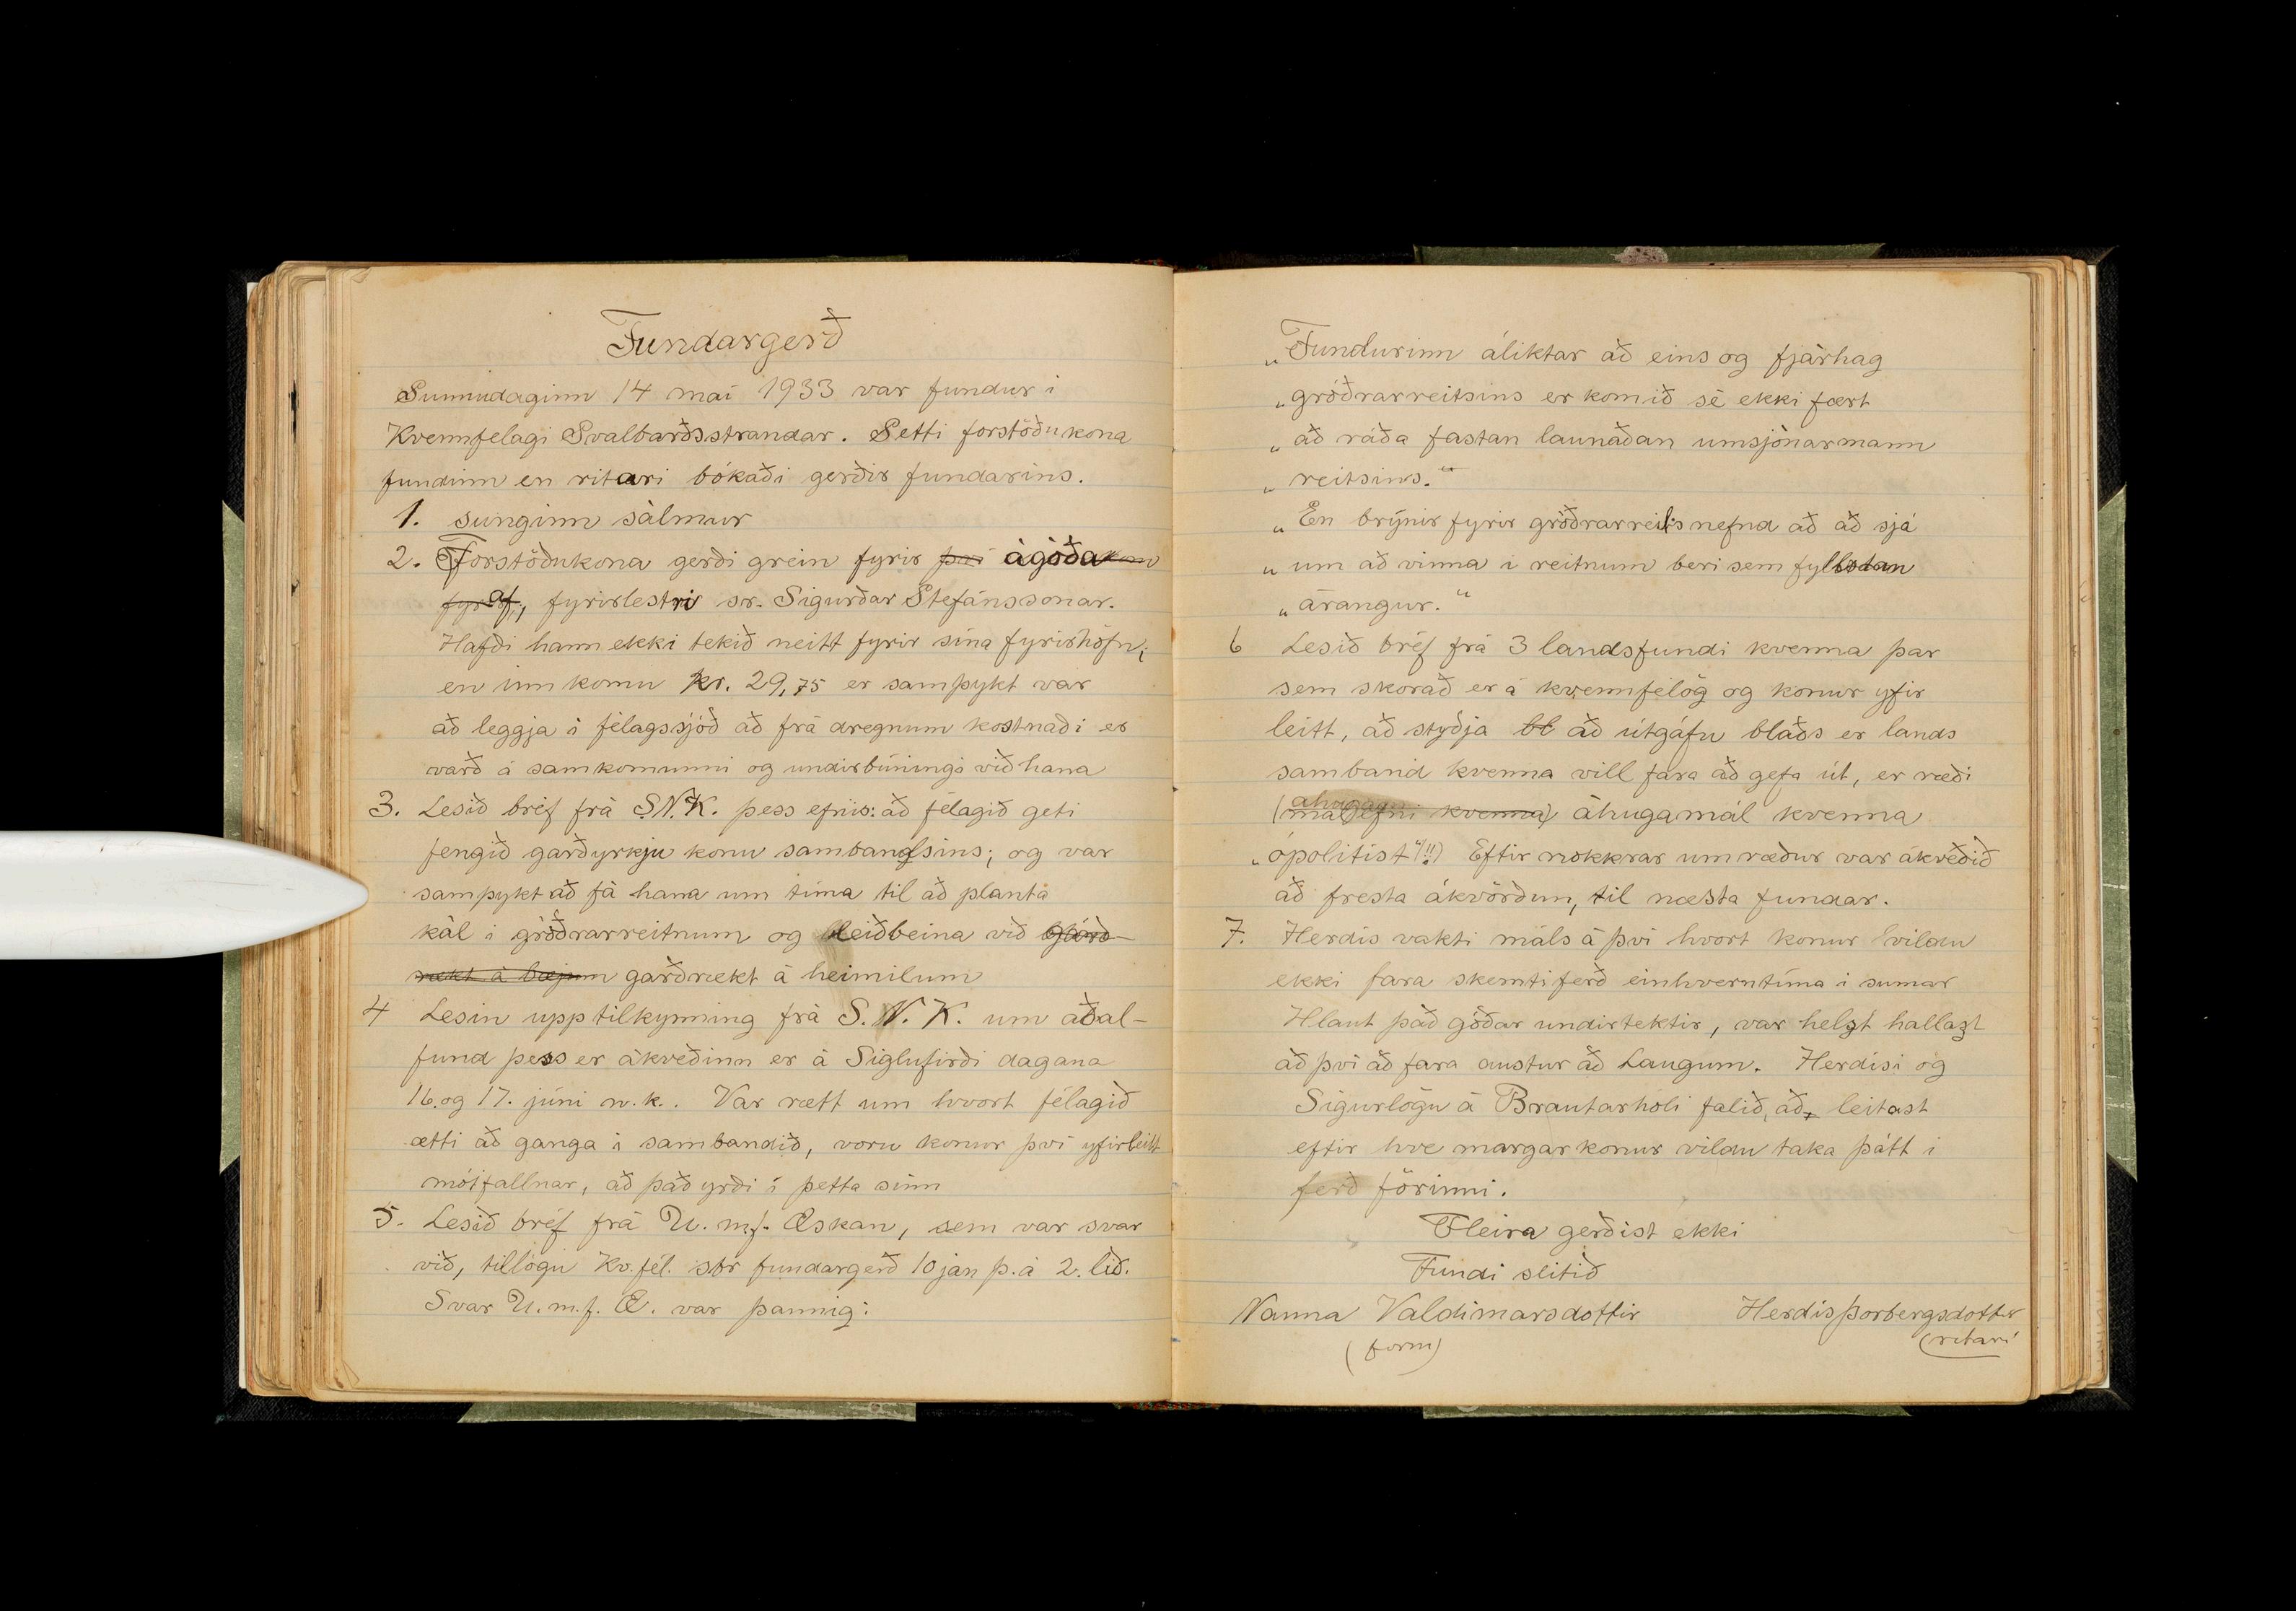 Fundargerð
Sunnudaginn 14 maí 1933 var fundur í
Kvennfelagi Svalbarðsstrandar. Setti forstöðukona
fundinn en ritari bókaði gerðir fundarins.
1. sunginn sálmur
2. Forstöðukona gerði grein fyrir því ágóða
af, fyrirlestri sr. Sigurðar Stefánssonar.
Hafði hann ekki tekið neitt fyrir sína fyrirhöfn;
en inn komu kr. 29,75 er samþykt var
að leggja í félagssjóð að frá dregnum kostnaði er
varð á samkomunni og undirbúningi við hana
3. Lesið bréf frá S.N.K. þess efnis: að félagið geti
fengið garðyrkju konu sambandsins; og var
samþykt að fá hana um tíma til að planta
kál í gróðrarreitnum og leiðbeina við garð-
rækt á bæjum garðrækt á heimilum
4 Lesin upp tilkynning frá S. N. K. um aðal-
fund þess er ákveðinn er á Siglufirði dagana
16. og 17. júní n.k.. Var rætt um hvort félagið
ætti að ganga í sambandið, voru konur því yfirleitt
mótfallnar, að það yrði í þetta sinn
5. Lesið bréf frá U. m.f. Æskan, sem var svar
við, tillögu Kv.fél. sbr fundargerð 10 jan þ.á 2. lið.
Svar U. m. f. Æ. var þannig:
„Fundurinn áliktar að eins og fjárhag
„gróðrarreitsins er komið sé ekki fært
„að ráða fastan launaðan umsjónarmann
„reitsins."
„En brýnir fyrir gróðrarreitsnefnd að að sjá
„um að vinna í reitnum beri sem fyllstan
„árangur."
6 Lesið bréf frá 3 landsfundi kvenna þar
sem skorað er á kvennfélög og konur yfir
leitt, að styðja bl að útgáfu blaðs er lands
samband kvenna vill fara að gefa út, er ræði
(málefni kvenna) áhugamál kvenna
„ópolitist"(!!) Eftir nokkrar umræður var ákveðið
að fresta ákvörðun, til næsta fundar.
7. Herdís vakti máls á því hvort konur vildu
ekki fara skemtiferð einhverntíma í sumar
Hlaut það góðar undirtektir, var helzt hallazt
að því að fara austur að Laugum. Herdísi og
Sigurlögu á Brautarhóli falið, að, leitast
eftir hve margar konur vildu taka þátt í
ferð förinni.
Fleira gerðist ekki
Fundi slitið
Nanna Valdimarsdottir Herdís Þorbergsdottir
(form) (ritari